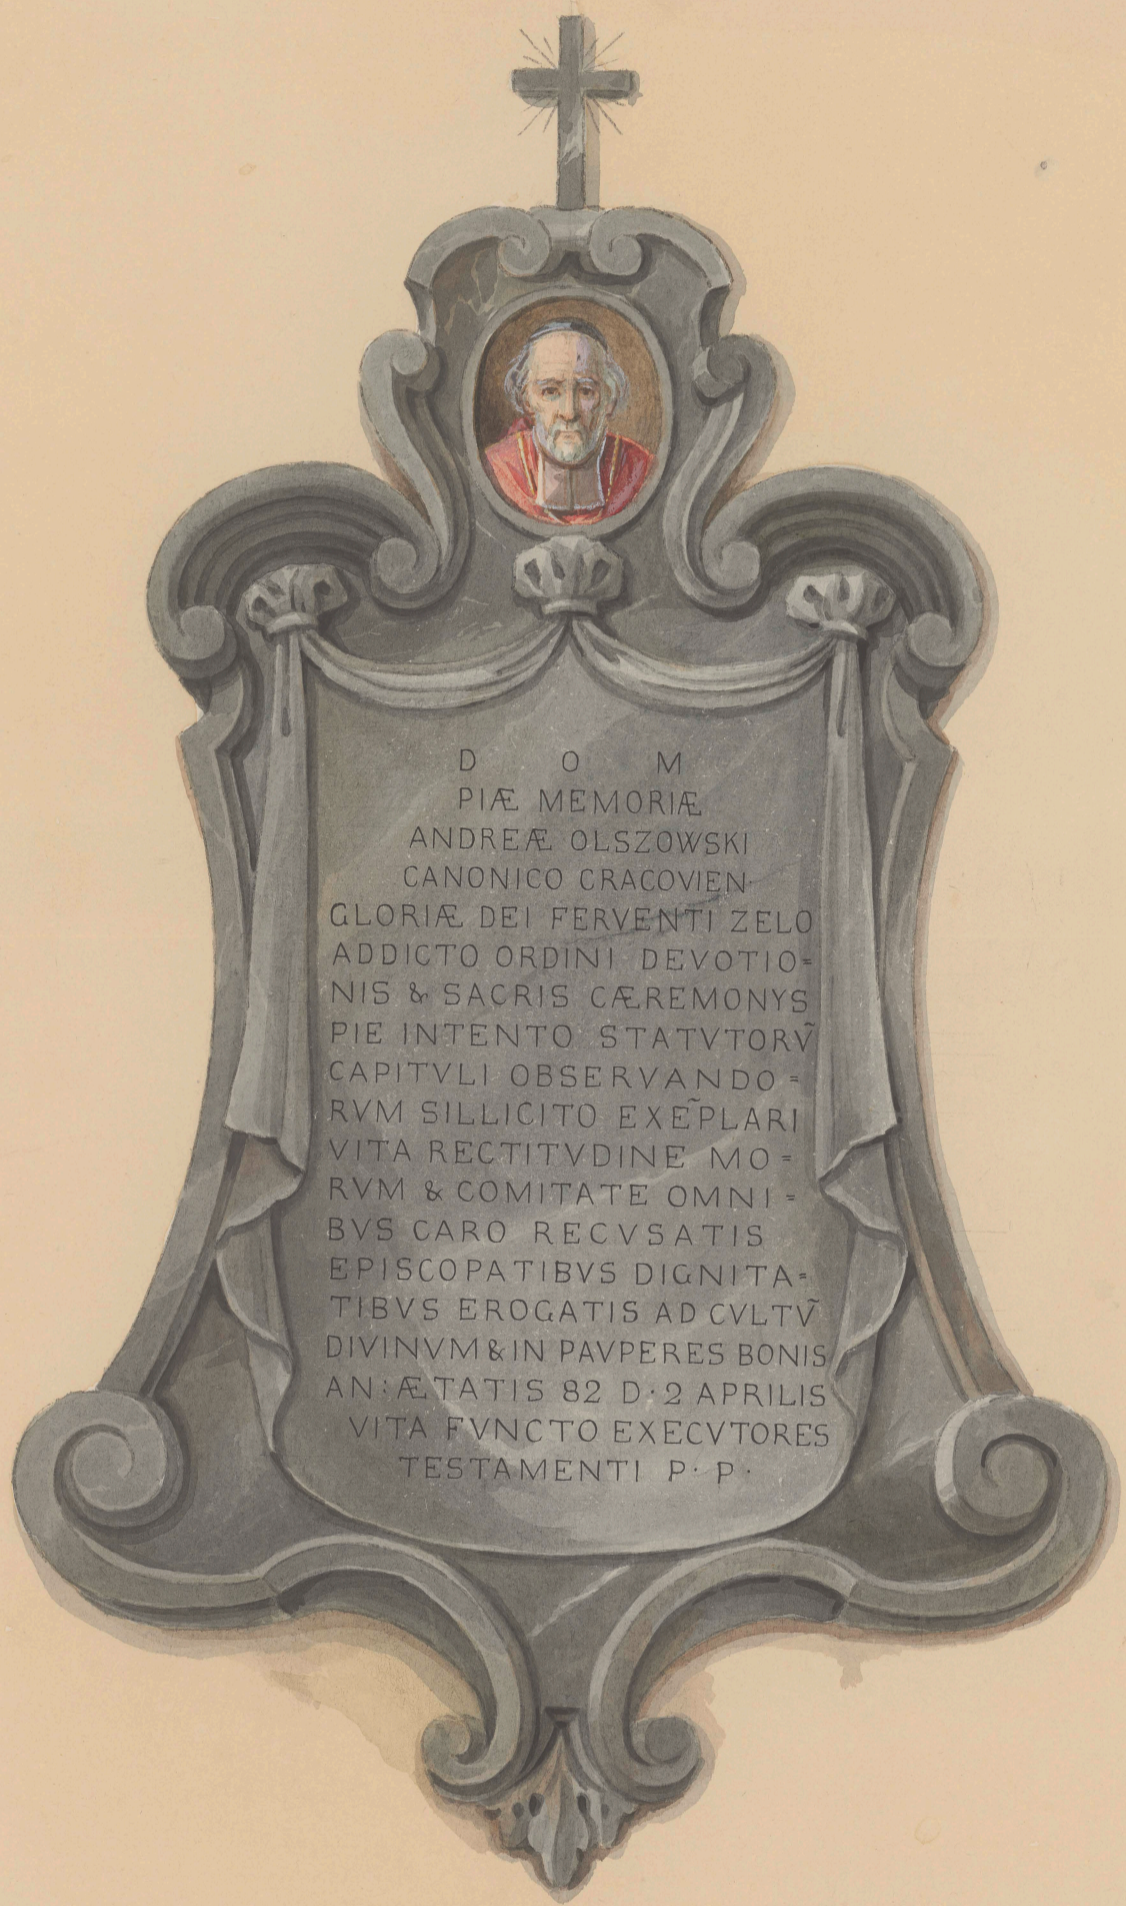 D O M
PIÆ MEMORIÆ
ANDREÆ OLSZOWSKI
CANONICO CRACOVIEN·
GLORIÆ DEI FERVENTI ZELO
ADDICTO ORDINI DEVOTIO=
NIS & SACRIS CÆREMONYS
PIE INTENTO STATVTORṼ
CAPITVLI OBSERVANDO=
RVM SILLICITO EXEP̃LARI
VITA RECTITVDINE MO=
RVM & COMITATE OMNI=
BVS CARO RECVSATIS
EPISCOPATIBVS DIGNITA=
TIBVS EROGATIS AD CVLTṼ
DIVINVM & IN PAVPERES BONIS
AN: ÆTATIS 82 D·2 APRILIS
VITA FVNCTO EXECVTORES
TESTAMENTI P· P·